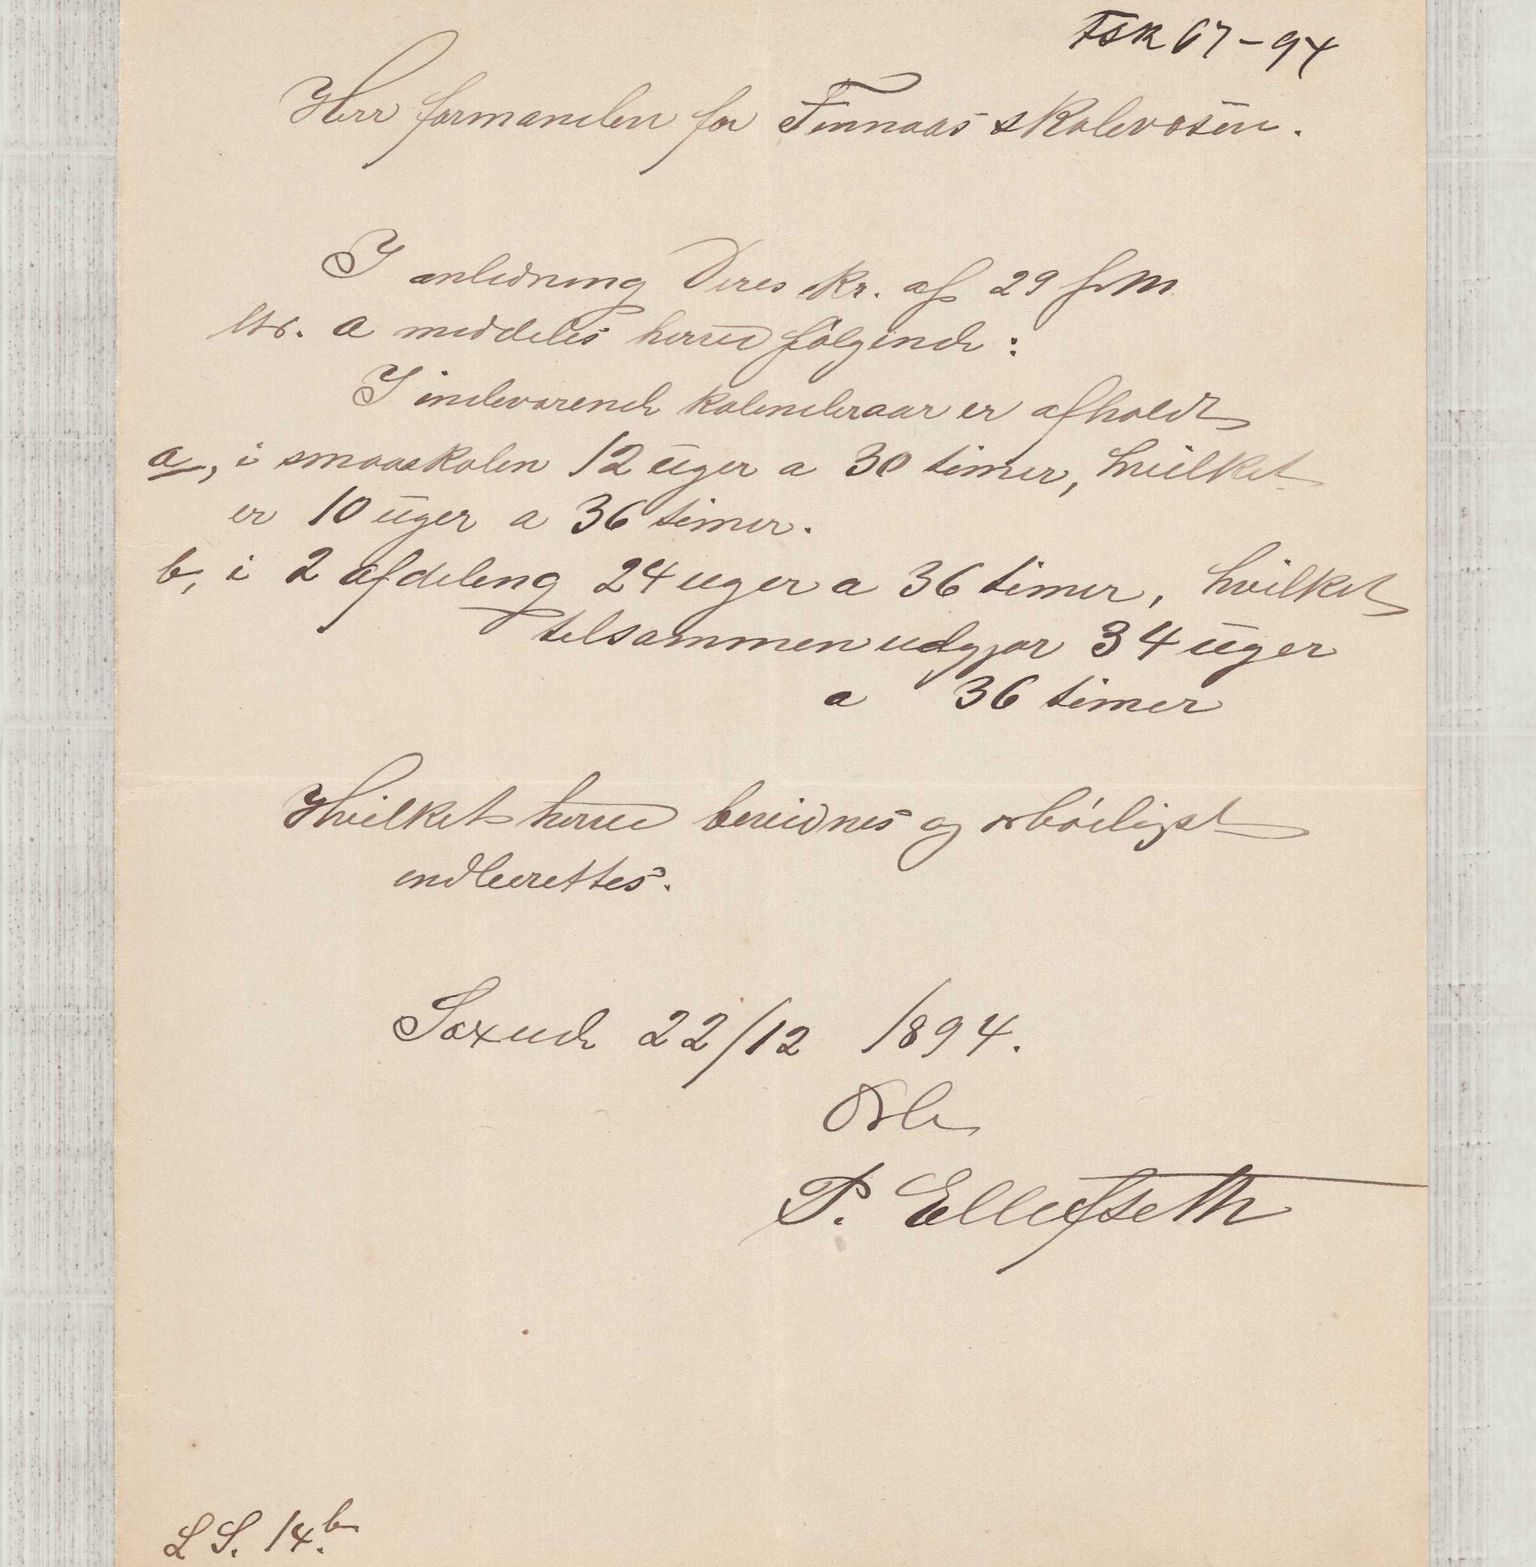 Fsk 67-94
Herr formanden for Finnaas skolevæsen.
I anledning Deres skr. af 29 f. m.
ltr. a meddeles herved følgende:
I indeværende kalenderaar er afholdt
a, i smaaskolen 12 uger a 30 timer, hvilket
er 10 uger a 36 timer.
b, i 2 afdeling 24 uger a 36 timer, hvilket
tilsammen udgjør 34 uger
a 36 timer
Hvilket herved bevidnes og ærbødigst
indberettes.
22/12 1894.
Ærb
P. Ellefseth
L S. 14 b.